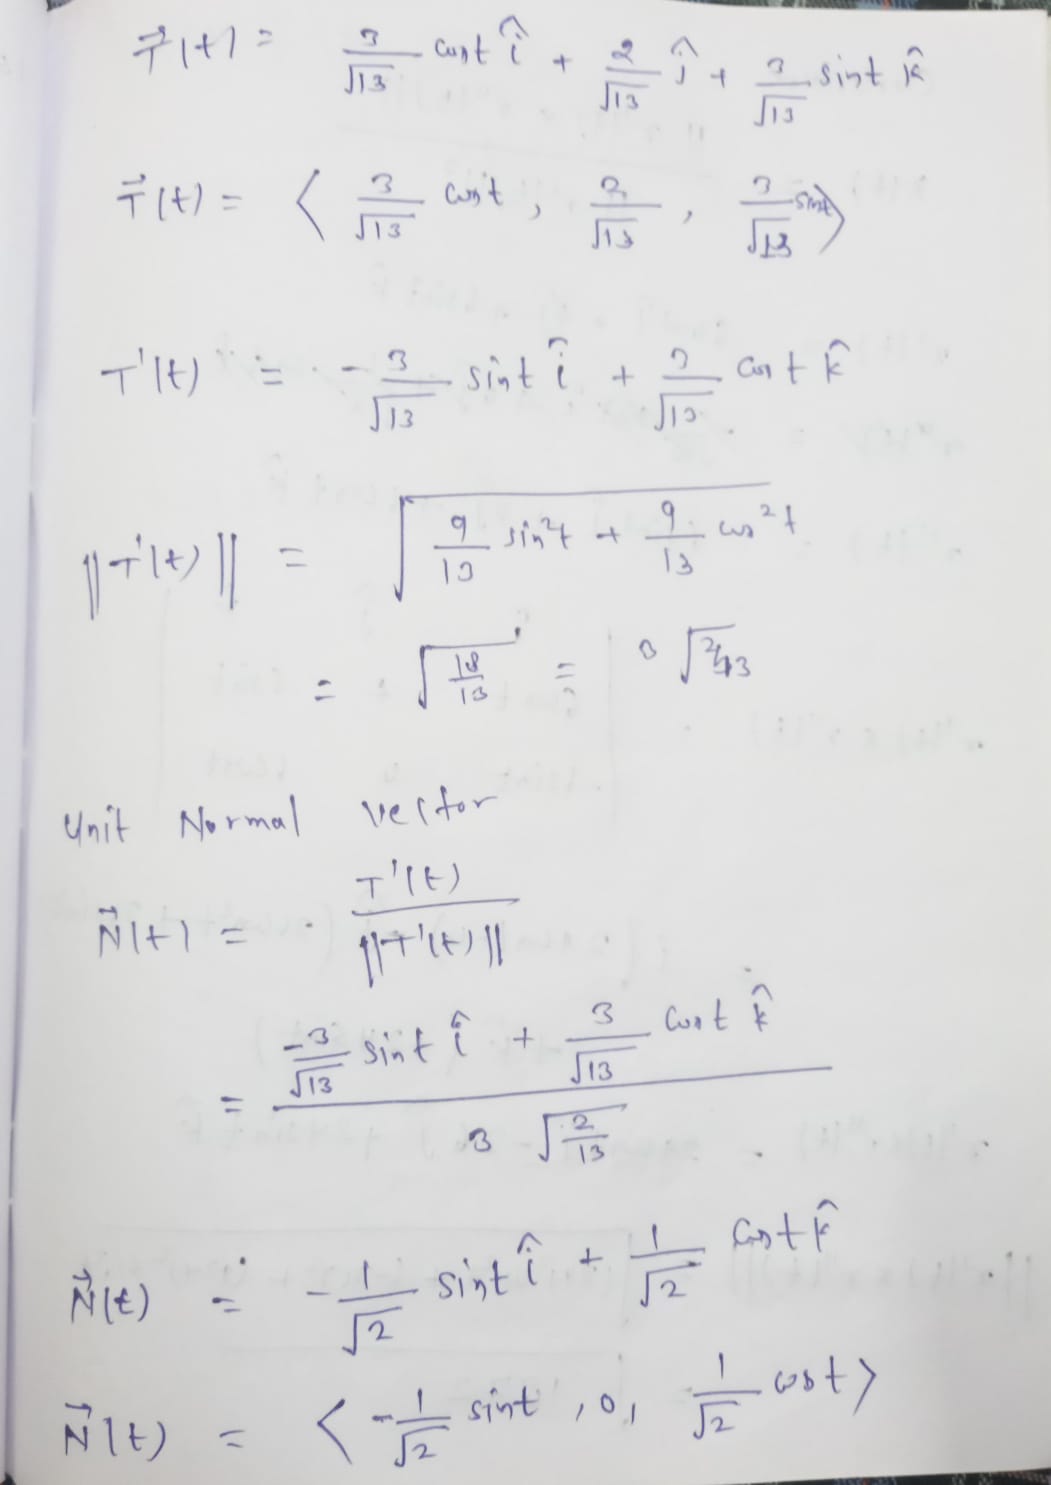 T⃗(t) = 3/√13 cost î + 2/√13 ĵ + 3/√13 sint k̂
T⃗(t) = ⟨ 3/√13 cost, 2/√13, 3/√13 sint ⟩
T'(t) = - 3/√13 sint î + 3/√13 cost k̂
||T'(t)|| = √(9/13 sin²t + 9/13 cos²t)
= √(18/13) = 3 √(2/13)
Unit Normal vector
N⃗(t) = T'(t) / ||T'(t)||
= (-3/√13 sint î + 3/√13 cost k̂) / (3 √(2/13))
N⃗(t) = - 1/√2 sint î + 1/√2 cost k̂
N⃗(t) = ⟨ -1/√2 sint, 0, 1/√2 cost ⟩